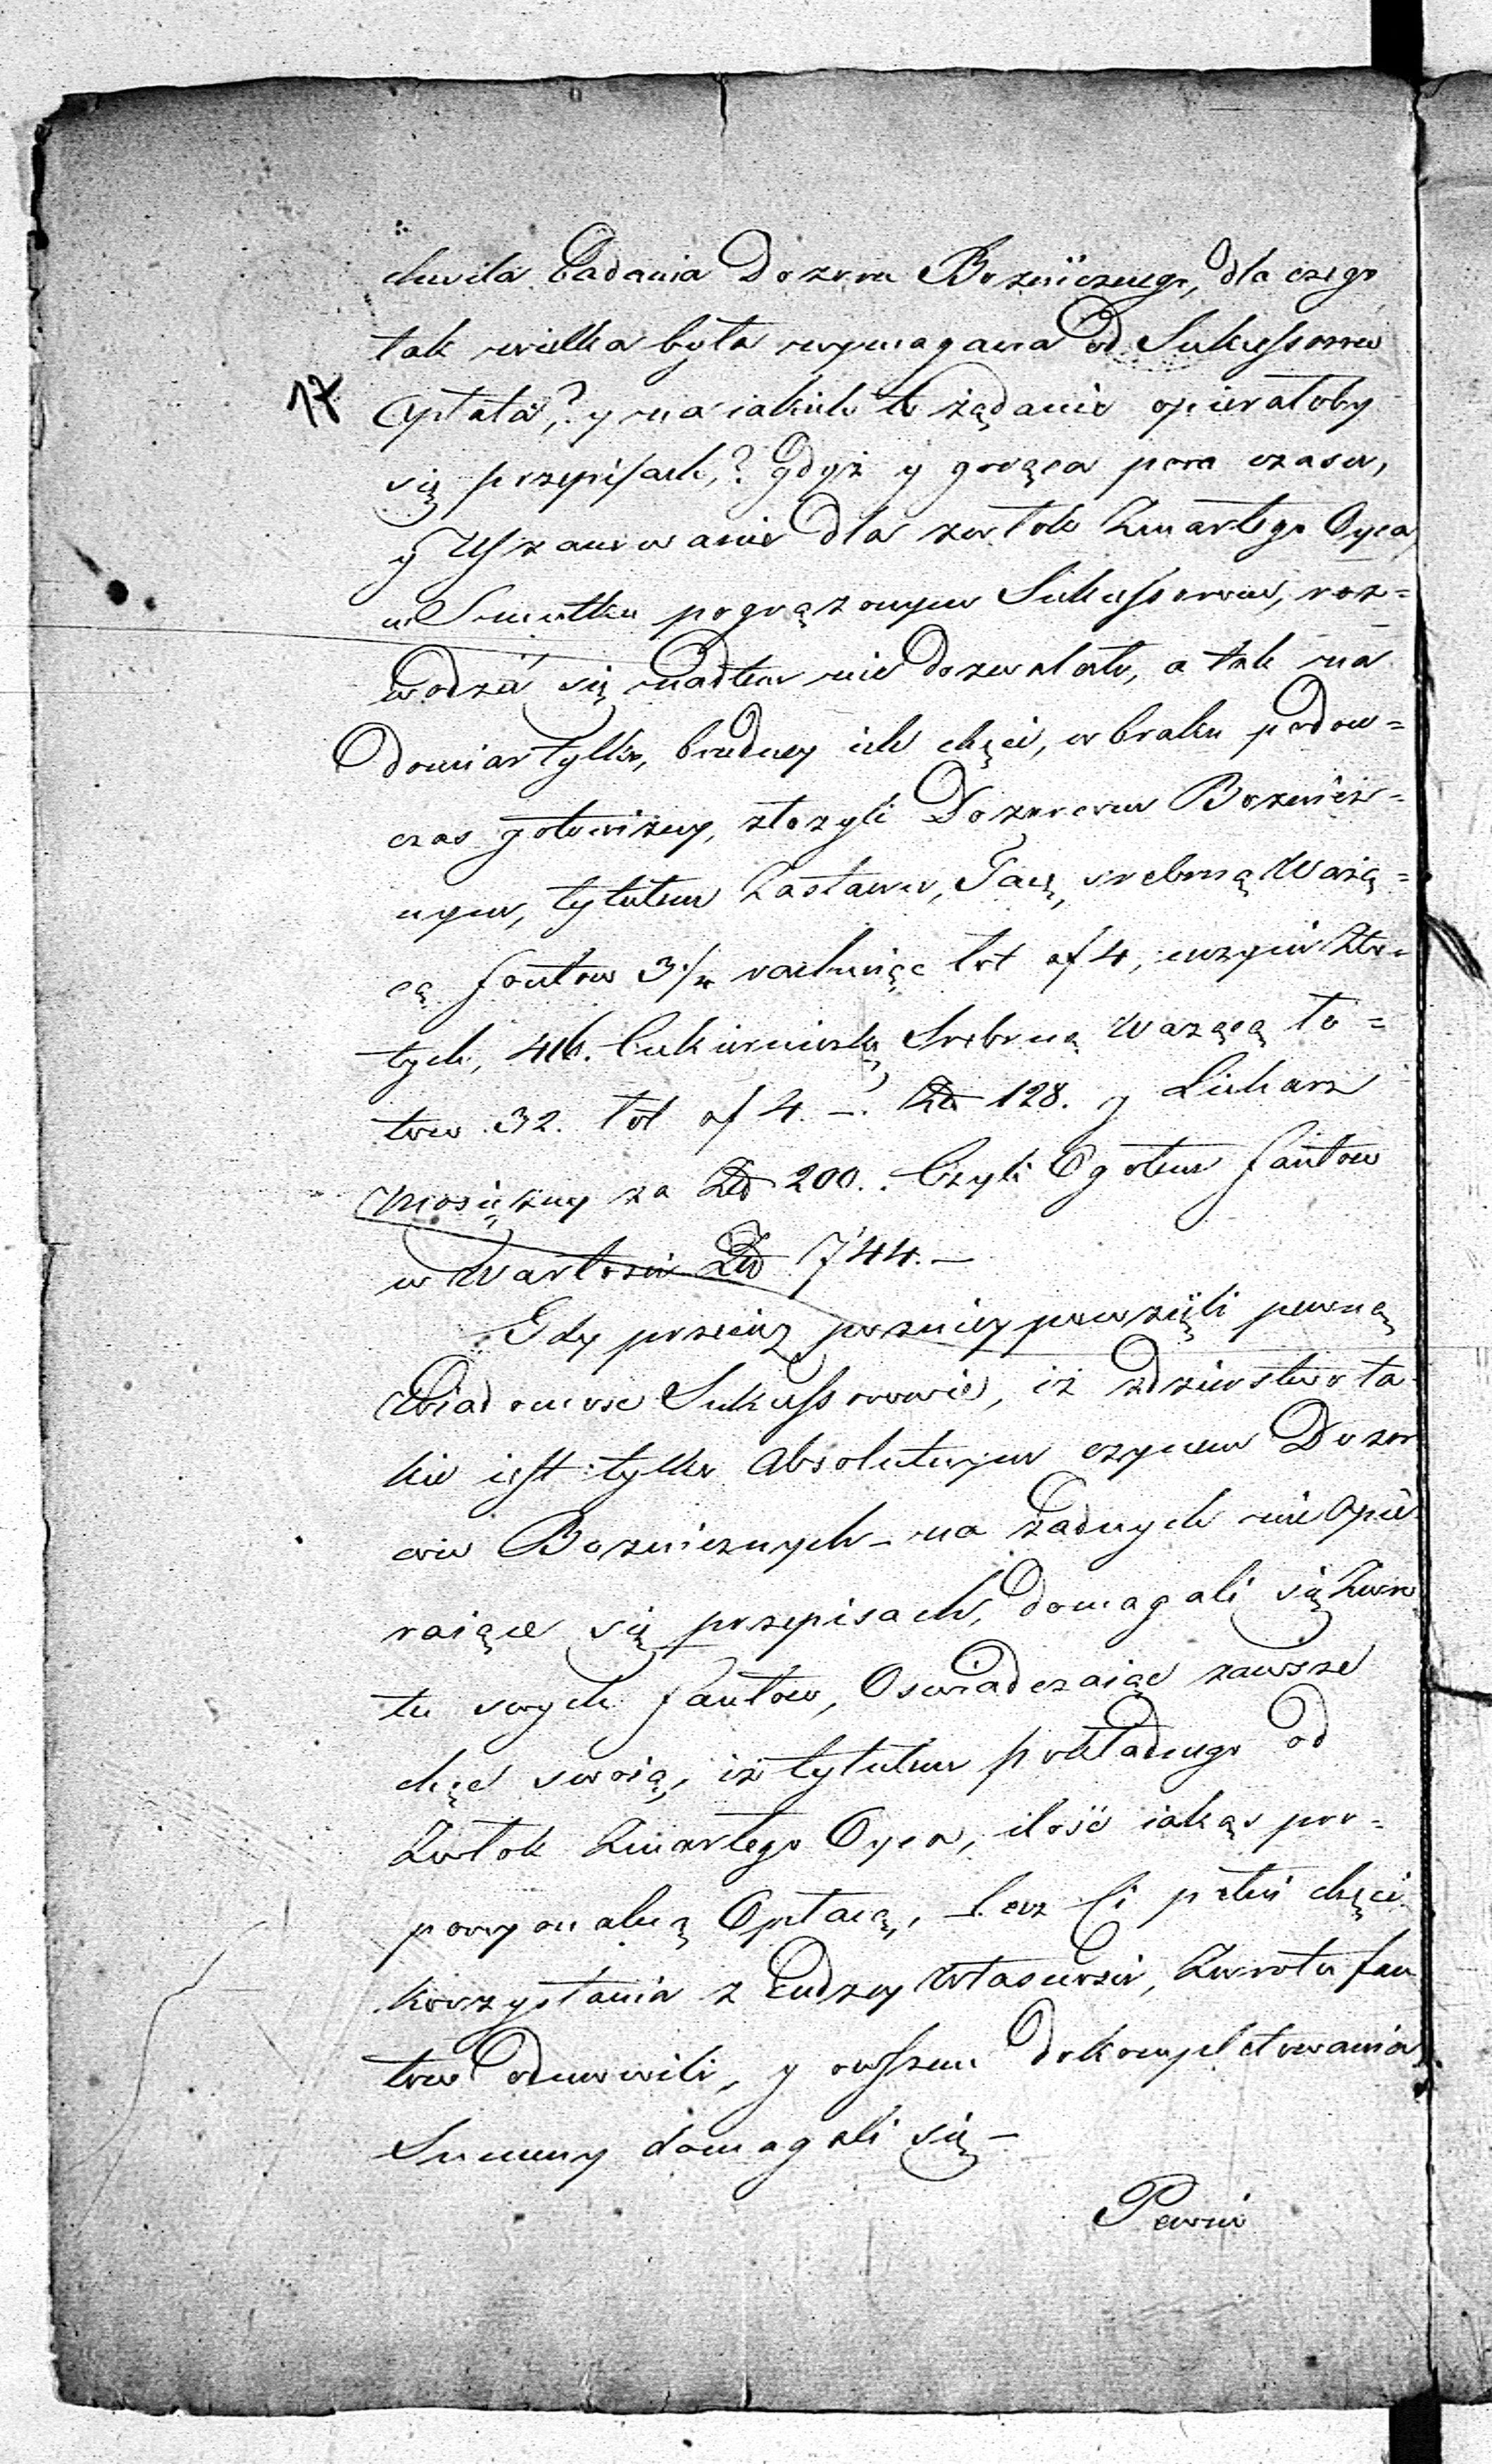 chwila badania Dozoru Bożnicznego, dla czego
tak wielka była wymagana od Sukcessorow
17
Opłata,? y na iakich to żądanie opierałoby
się przepisach,? gdyż y gorąca pora czasu,
y Uszanowanie dla zwłok Zmarłego Oyca
w Smutku pogrążonym Sukcessorom, roz=
wodzić się nadtem nie dozwalało, a tak na
domiar tylko, brudney ich chęci, w braku podow=
czas gotowizny, złożyli Dozorcom Bożnicz=
nym, tytułem Zastawu, Tacę, srebrną Ważą=
cą funtow 3 1/4 rachuiąc łot af 4, czyni Zło=
tych, 416. Cukierniczkę Srebrną Ważącą ło=
tow 32. łot af 4 _. Zł 128. y Licharz
mosiężny za Zł 200.. Czyli Ogołem fantow
w Wartości Zł 744._
Gdy przecięż pozniey powzięli pewną
Wiadomosc Sukcessorowie, iż zdzierstwo ta
kie iest tylko Absolutnym czynem Dozor
cow Bożnicznych _ na żadnych nie Opie
raiące się przepisach, domagali się Zwro
tu swych fantow, Oswiadczaiąc zawsze
chęć swoią, iż tytułem pokładnego od
Zwłok Zmarłego Oyca, ilość iakąs pro=
porcyonalną Opłacą, _ lecz Ci pełni chęci
korzystania z Cudzey Własnosci, Zwrotu fan
tow odmowili, y owszem dokompletowania
Summy domagali się _
Pewni